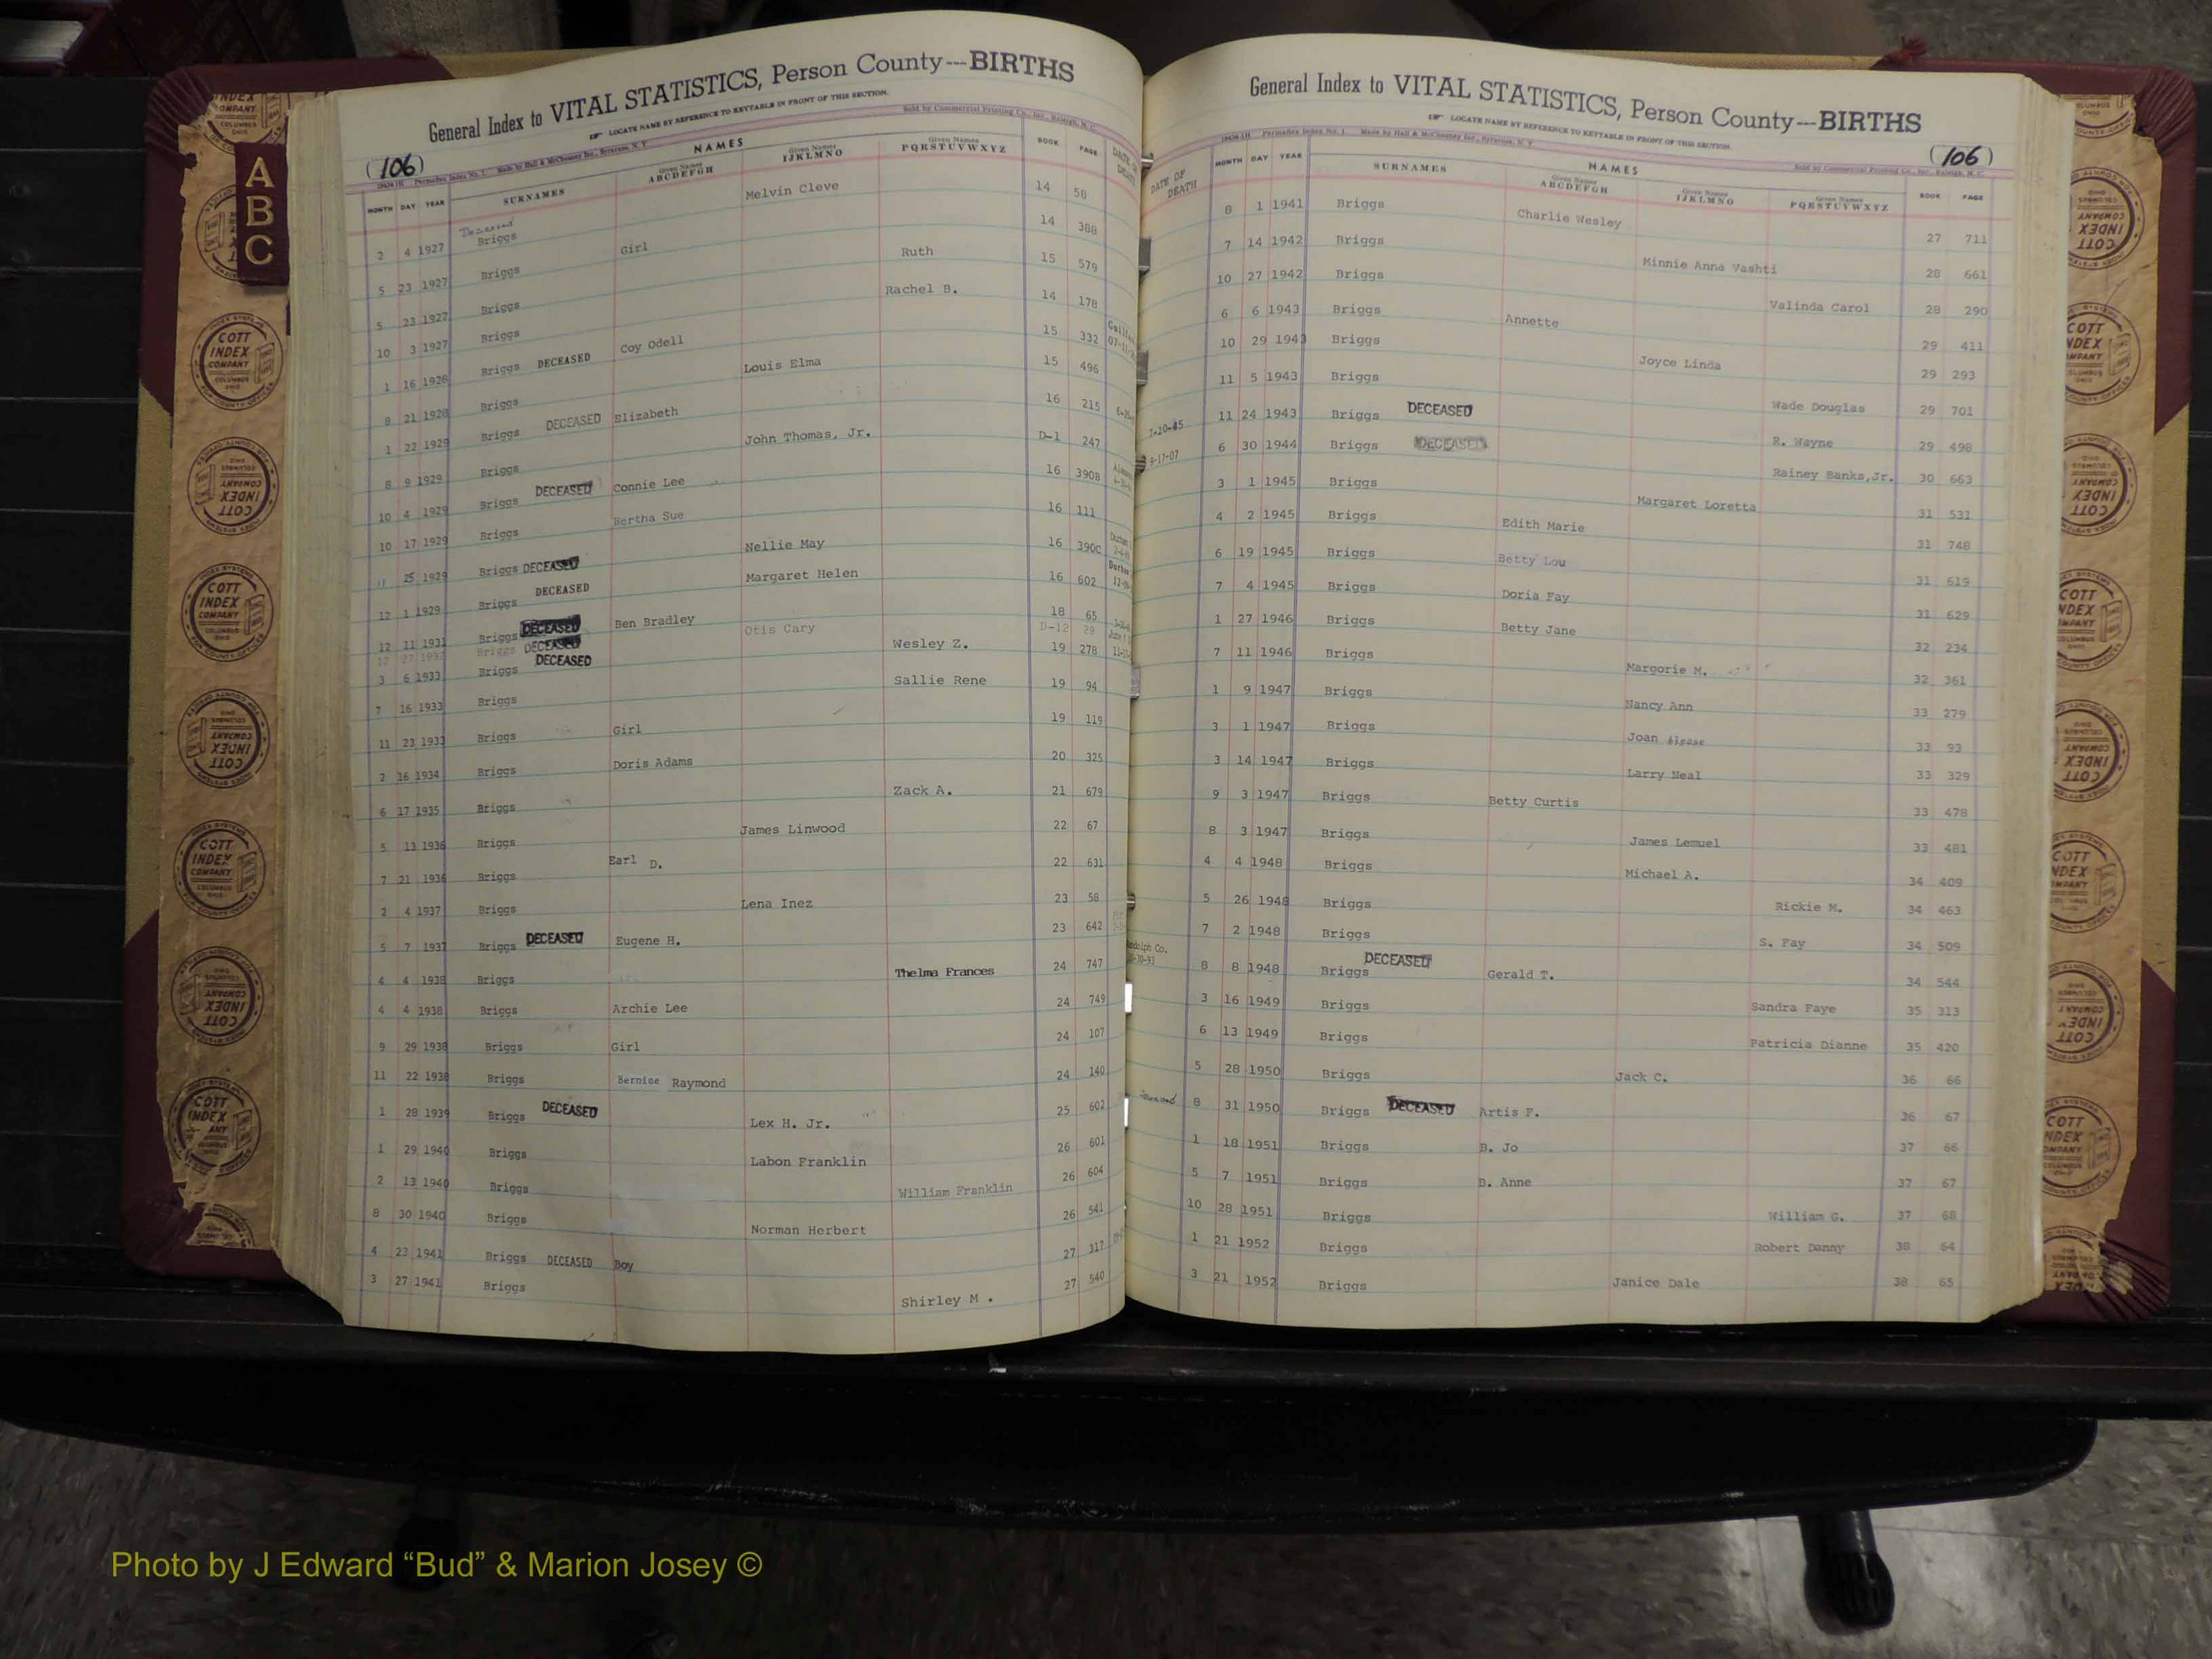 General Index to VITAL STATISTICS, Person County---BIRTHS
LOCATE NAME BY REFERENCE TO KEYTABLE IN FRONT OF THIS SECTION.
(106)
Sold by Commercial Printing Co., Inc., Raleigh, N. C.
MONTH DAY YEAR SURNAMES NAMES Given Names ABCDEFGH Given Names IJKLMNO Given Names PQRSTUVWXYZ BOOK PAGE
2 4 1927 Deceased Briggs Melvin Cleve 14 58
5 23 1927 Briggs Girl 14 388
5 23 1927 Briggs Ruth 15 579
10 3 1927 Briggs Rachel B. 14 178
1 16 1928 Briggs DECEASED Coy Odell 15 332
8 21 1928 Briggs Louis Elma 15 496
1 22 1929 Briggs DECEASED Elizabeth 16 215
8 9 1929 Briggs John Thomas, Jr. D-1 247
10 4 1929 Briggs DECEASED Connie Lee 16 390B
10 17 1929 Briggs Bertha Sue 16 111
11 25 1929 Briggs DECEASED Nellie May 16 390C
12 1 1929 Briggs DECEASED Margaret Helen 16 602
12 11 1931 Briggs DECEASED Ben Bradley 18 65
12 27 Briggs DECEASED Otis Cary D-12 29
3 6 1933 Briggs DECEASED Wesley Z. 19 278
7 16 1933 Briggs Sallie Rene 19 94
11 23 1933 Briggs Girl 19 119
2 16 1934 Briggs Doris Adams 20 325
6 17 1935 Briggs Zack A. 21 679
5 13 1936 Briggs James Linwood 22 67
7 21 1936 Briggs Earl D. 22 631
2 4 1937 Briggs Lena Inez 23 58
5 7 1937 Briggs DECEASED Eugene H. 23 642
4 4 1938 Briggs Thelma Frances 24 747
4 4 1938 Briggs Archie Lee 24 749
9 29 1938 Briggs Girl 24 107
11 22 1938 Briggs Bernice Raymond 24 140
1 28 1939 Briggs DECEASED Lex H. Jr. 25 602
1 29 1940 Briggs Labon Franklin 26 601
2 13 1940 Briggs William Franklin 26 604
8 30 1940 Briggs Norman Herbert 26 541
4 23 1941 Briggs DECEASED Boy 27 317
3 27 1941 Briggs Shirley M. 27 540
General Index to VITAL STATISTICS, Person County---BIRTHS
LOCATE NAME BY REFERENCE TO KEYTABLE IN FRONT OF THIS SECTION.
(106)
Sold by Commercial Printing Co., Inc., Raleigh, N. C.
DATE OF DEATH MONTH DAY YEAR SURNAMES NAMES Given Names ABCDEFGH Given Names IJKLMNO Given Names PQRSTUVWXYZ BOOK PAGE
8 1 1941 Briggs Charlie Wesley 27 711
7 14 1942 Briggs Minnie Anna Vashti 28 661
10 27 1942 Briggs Valinda Carol 28 290
6 6 1943 Briggs Annette 29 411
10 29 1943 Briggs Joyce Linda 29 293
11 5 1943 Briggs Wade Douglas 29 701
7-20-85 11 24 1943 Briggs DECEASED R. Wayne 29 498
9-17-07 6 30 1944 Briggs DECEASED Rainey Banks,Jr. 30 663
3 1 1945 Briggs Margaret Loretta 31 531
4 2 1945 Briggs Edith Marie 31 748
6 19 1945 Briggs Betty Lou 31 619
7 4 1945 Briggs Doria Fay 31 629
1 27 1946 Briggs Betty Jane 32 234
7 11 1946 Briggs Margorie M. 32 361
1 9 1947 Briggs Nancy Ann 33 279
3 1 1947 Briggs Joan 33 93
3 14 1947 Briggs Larry Neal 33 329
9 3 1947 Briggs Betty Curtis 33 478
8 3 1947 Briggs James Lemuel 33 481
4 4 1948 Briggs Michael A. 34 409
5 26 1948 Briggs Rickie M. 34 463
7 2 1948 Briggs S. Fay 34 509
8 8 1948 Briggs DECEASED Gerald T. 34 544
3 16 1949 Briggs Sandra Faye 35 313
6 13 1949 Briggs Patricia Dianne 35 420
5 28 1950 Briggs Jack C. 36 66
8 31 1950 Briggs DECEASED Artis F. 36 67
1 18 1951 Briggs B. Jo 37 66
5 7 1951 Briggs B. Anne 37 67
10 28 1951 Briggs William G. 37 68
1 21 1952 Briggs Robert Danny 38 64
3 21 1952 Briggs Janice Dale 38 65
A
B
C
COTT
INDEX
COMPANY
Photo by J Edward “Bud” & Marion Josey ©